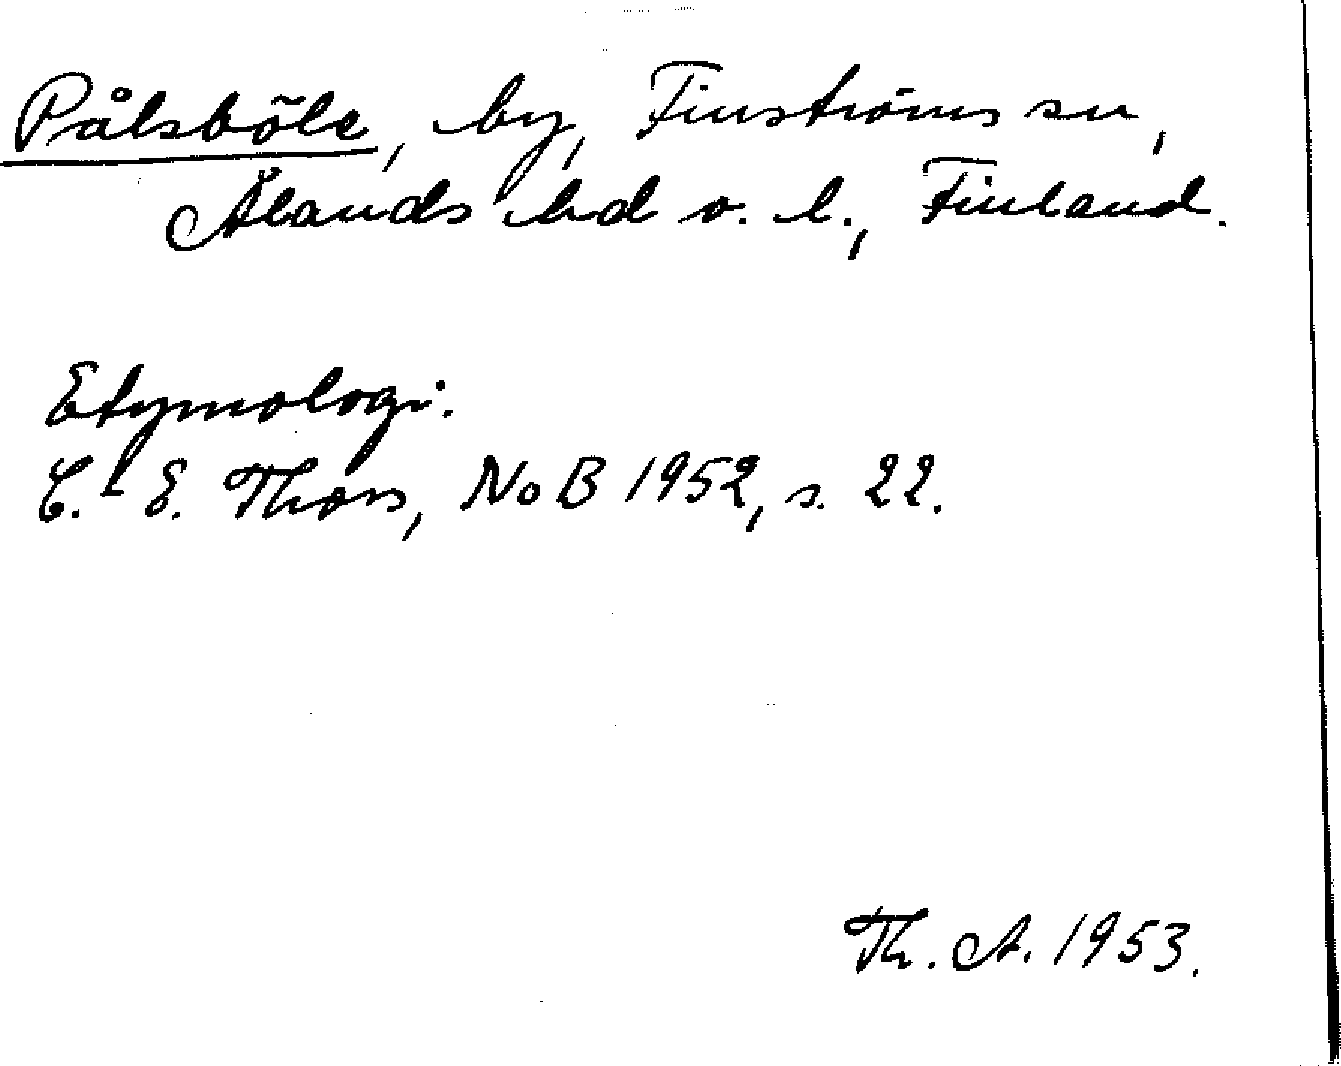 Pålsböle, by, Finströms sn,
Ålands hd o. l., Finland.
Etymologi.
C.-E. Thors, NoB 1952, s. 22.
Th. A. 1953.